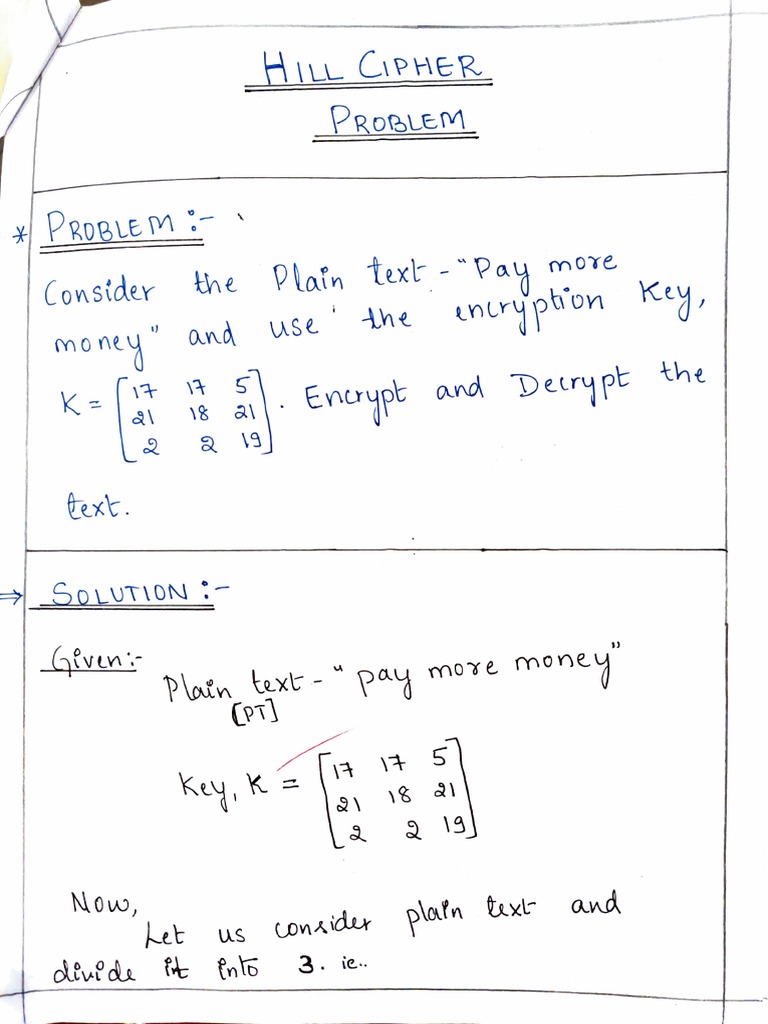 HILL CIPHER
PROBLEM
* PROBLEM :-
Consider the Plain text - "Pay more
money" and use the encryption Key,
K = [17 17 5
21 18 21
2 2 19]. Encrypt and Decrypt the
text.
⇒ SOLUTION :-
Given:- Plain text - "pay more money"
[PT]
Key, K = [17 17 5
21 18 21
2 2 19]
Now,
Let us consider plain text and
divide it into 3. ie..